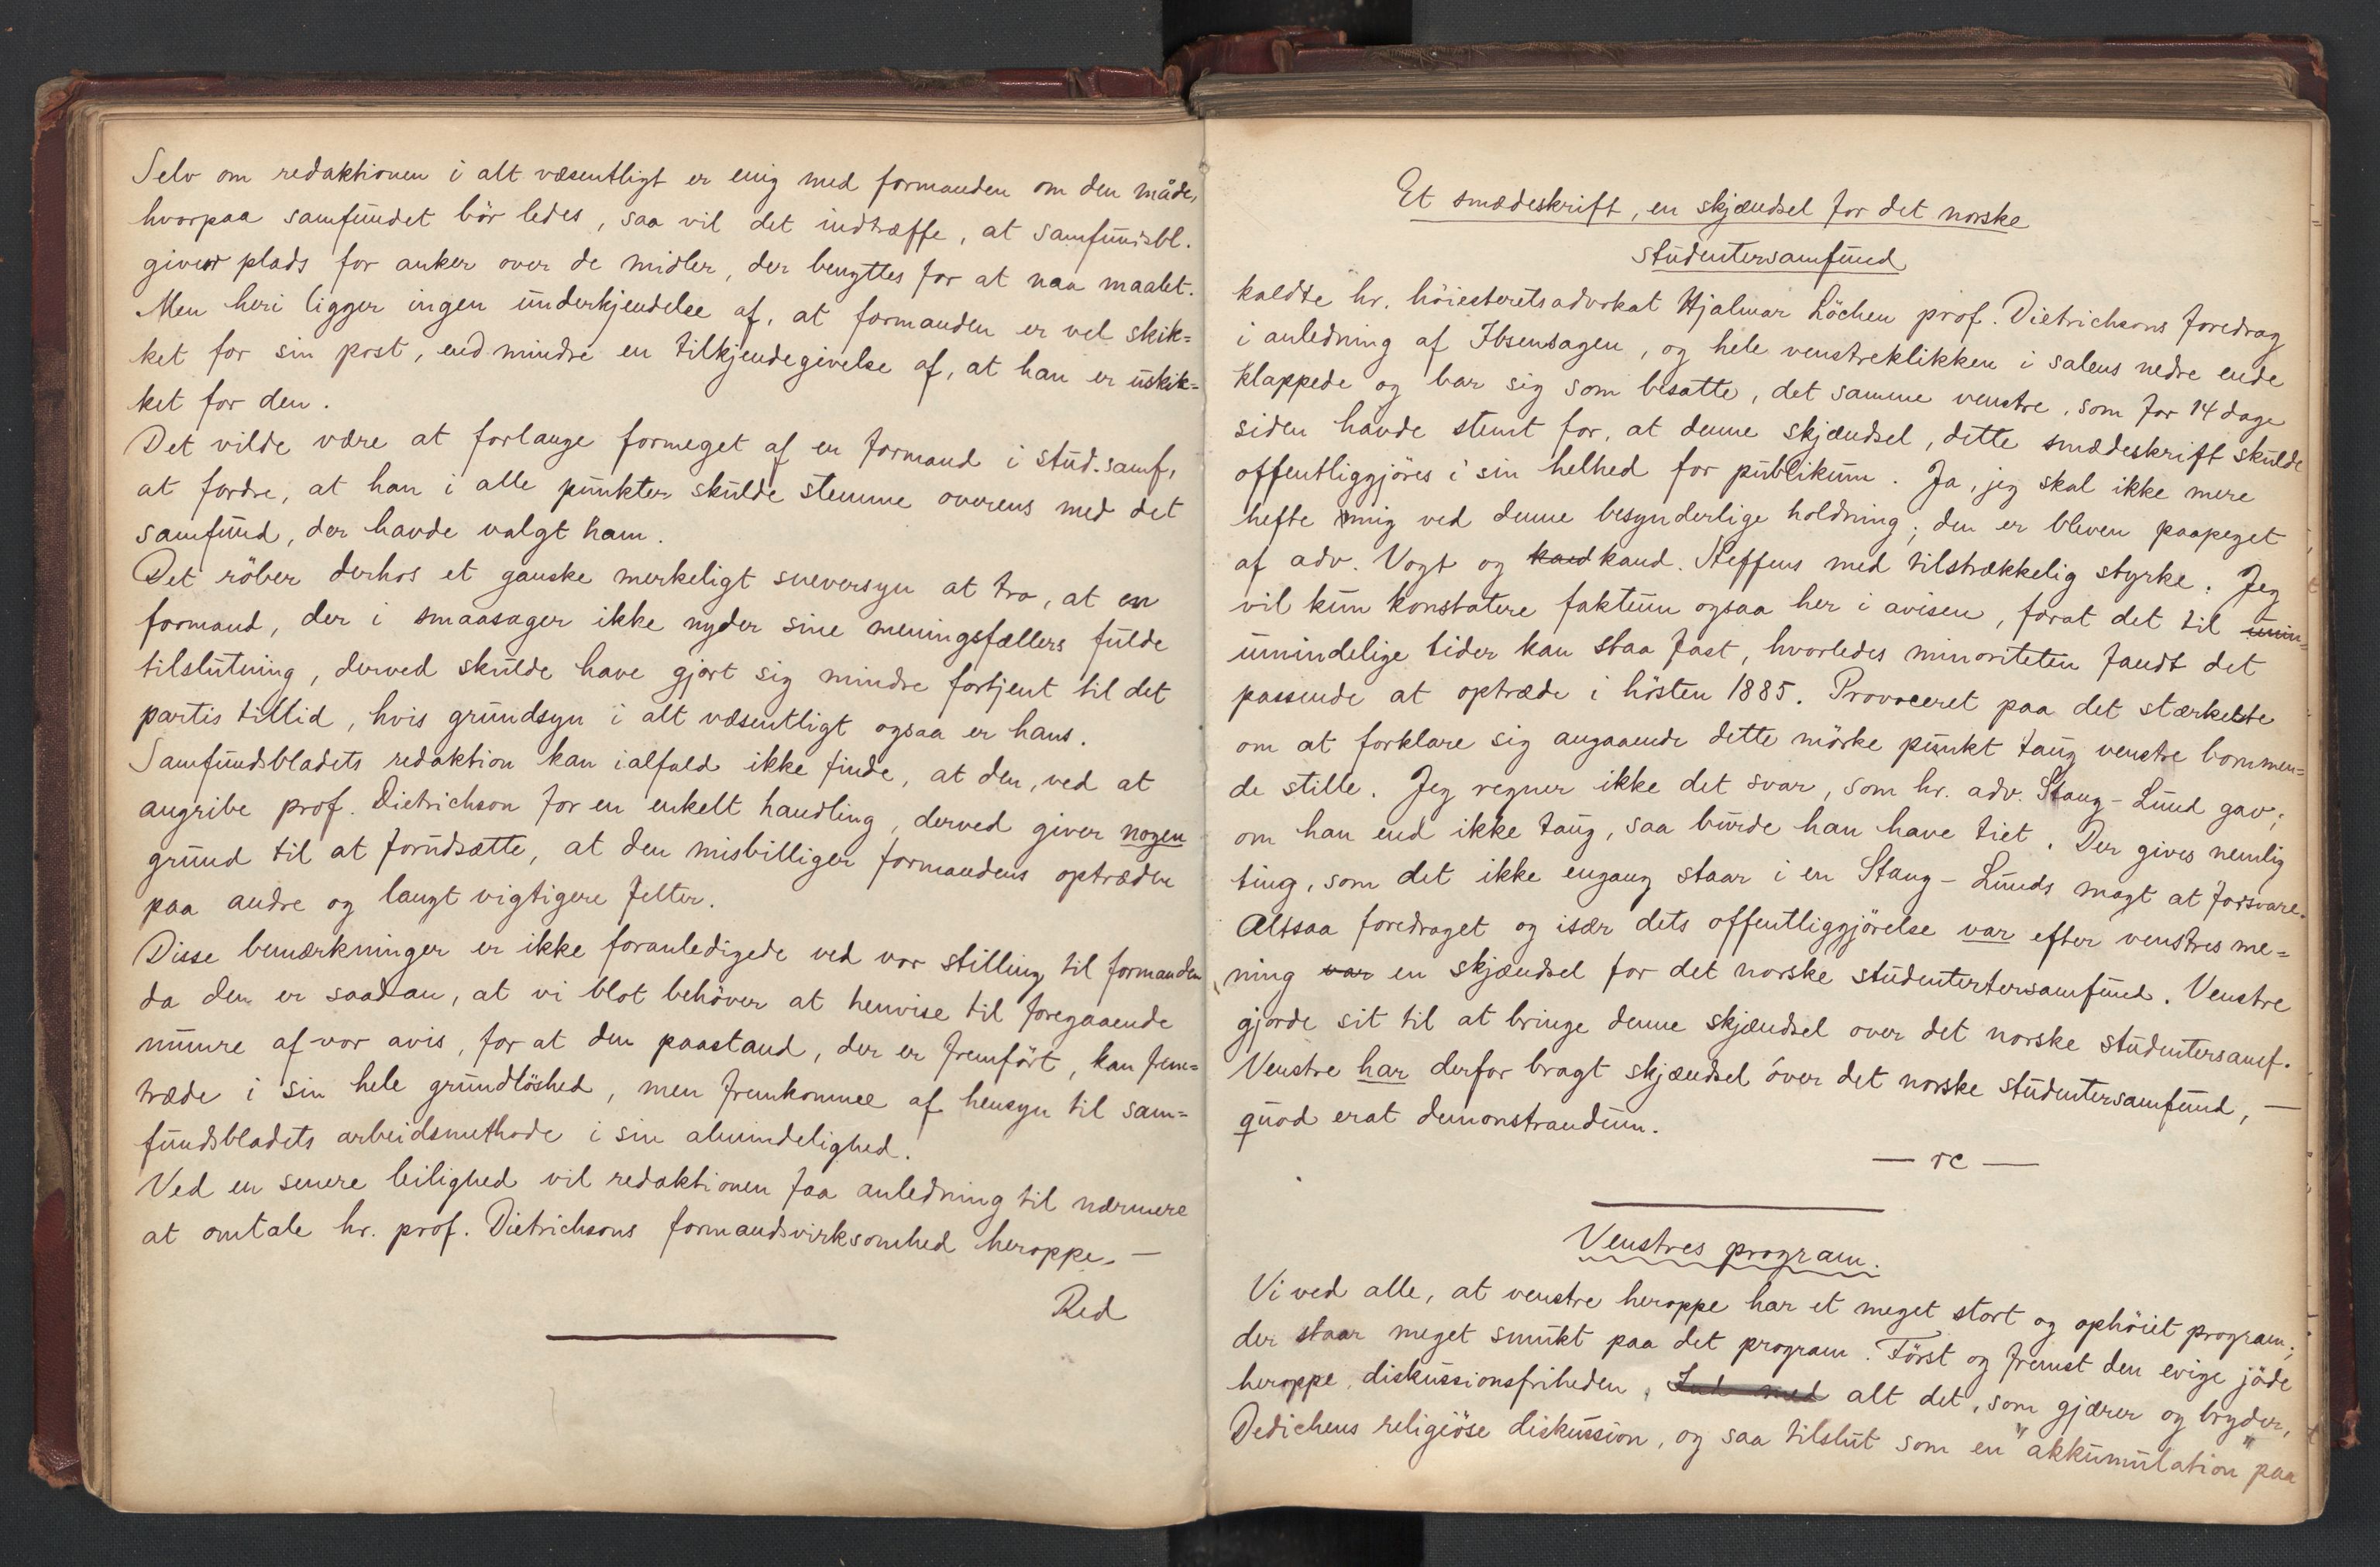 Selv om redaktionen i alt væsentligt er enig med formanden om den måde,
hvorpaa samfundet bör ledes, saa vil det indtræffe, at samfundsbl.
giver plads for anker over de midler, der benyttes for at naa maalet.
Men heri ligger ingen underkjendelse af, at formanden er vel skik=
ket for sin post, end mindre en tilkjendegivelse af, at han er uskik=
ket for den.
Det vilde være at forlange formeget af en formand i stud.samf,
at fordre, at han i alle punkter skulde stemme overens med det
samfund, der havde valgt ham.
Det röber derhos et ganske merkeligt sneversyn at tro, at en
formand, der i smaasager ikke nyder sine meningsfællers fulde
tilslutning, derved skulde have gjort sig mindre fortjent til det
partis tillid, hvis grundsyn i alt væsentligt ogsaa er hans.
Samfundsbladets redaktion kan ialfald ikke finde, at den, ved at
angribe prof. Dietrichson for en enkelt handling, derved giver nogen
grund til at forudsætte, at den misbilliger formandens optræden
paa andre og langt vigtigere felter.
Disse bemærkninger er ikke foranledigede ved vor stilling til formanden
da den er saadan, at vi blot behöver at henvise til foregaaende
numre af vor avis, for at den paastand, der er fremfört, kan frem=
træde i sin hele grundlöshed, men fremkomne af hensyn til sam=
fundsbladets arbeidsmethode i sin almindelighed.
Ved en senere leilighed vil redaktionen faa anledning til nærmere
at omtale hr. prof. Dietrichsons formandsvirksomhed heroppe. —
Red
Et smædeskrift, en skjændsel for det norske
studentersamfund
kaldte hr. höiesteretsadvokat Hjalmar Löchen prof. Dietrichsons foredrag
i anledning af Ibsensagen, og hele venstreklikken i salens nedre ende
klappede og bar sig som besatte, det samme venstre, som for 14 dage
siden havde stemt for, at denne skjændsel, dette smædeskrift skulde
offentliggjöres i sin helhed for publikum. Ja, jeg skal ikke mere
hefte mig ved denne besynderlige holdning; den er bleven paapeget
af adv. Vogt og kand kand. Steffens med tilstrækkelig styrke. Jeg
vil kun konstatere faktum ogsaa her i avisen, forat det til umin=
umindelige tider kan staa fast, hvorledes minoriteten fandt det
passende at optræde i hösten 1885. Provoceret paa det stærkeste
om at forklare sig angaaende dette mörke punkt taug venstre bommen=
de stille. Jeg regner ikke det svar, som hr. adv. Stang-Lund gav;
om han end ikke taug, saa burde han have tiet. Der gives nemlig
ting, som det ikke engang staar i en Stang-Lunds magt at forsvare.
Altsaa foredraget og især dets offentliggjörelse var efter venstres me=
ning var en skjændsel for det norske studentertersamfund. Venstre
gjorde sit til at bringe denne skjændsel over det norske studentersamf.
Venstre har derfor bragt skjændsel over det norske studentersamfund, —
quod erat demonstrandum.
— rc —
Venstres program.
Vi ved alle, at venstre heroppe har et meget stort og ophöiet program;
der staar meget smukt paa det program. Först og fremst den evige jöde
heroppe, diskussionsfriheden, alt det, som gjærer og bryder,
Dedichens religiöse diskussion, og saa tilslut som en "akkumulation" paa